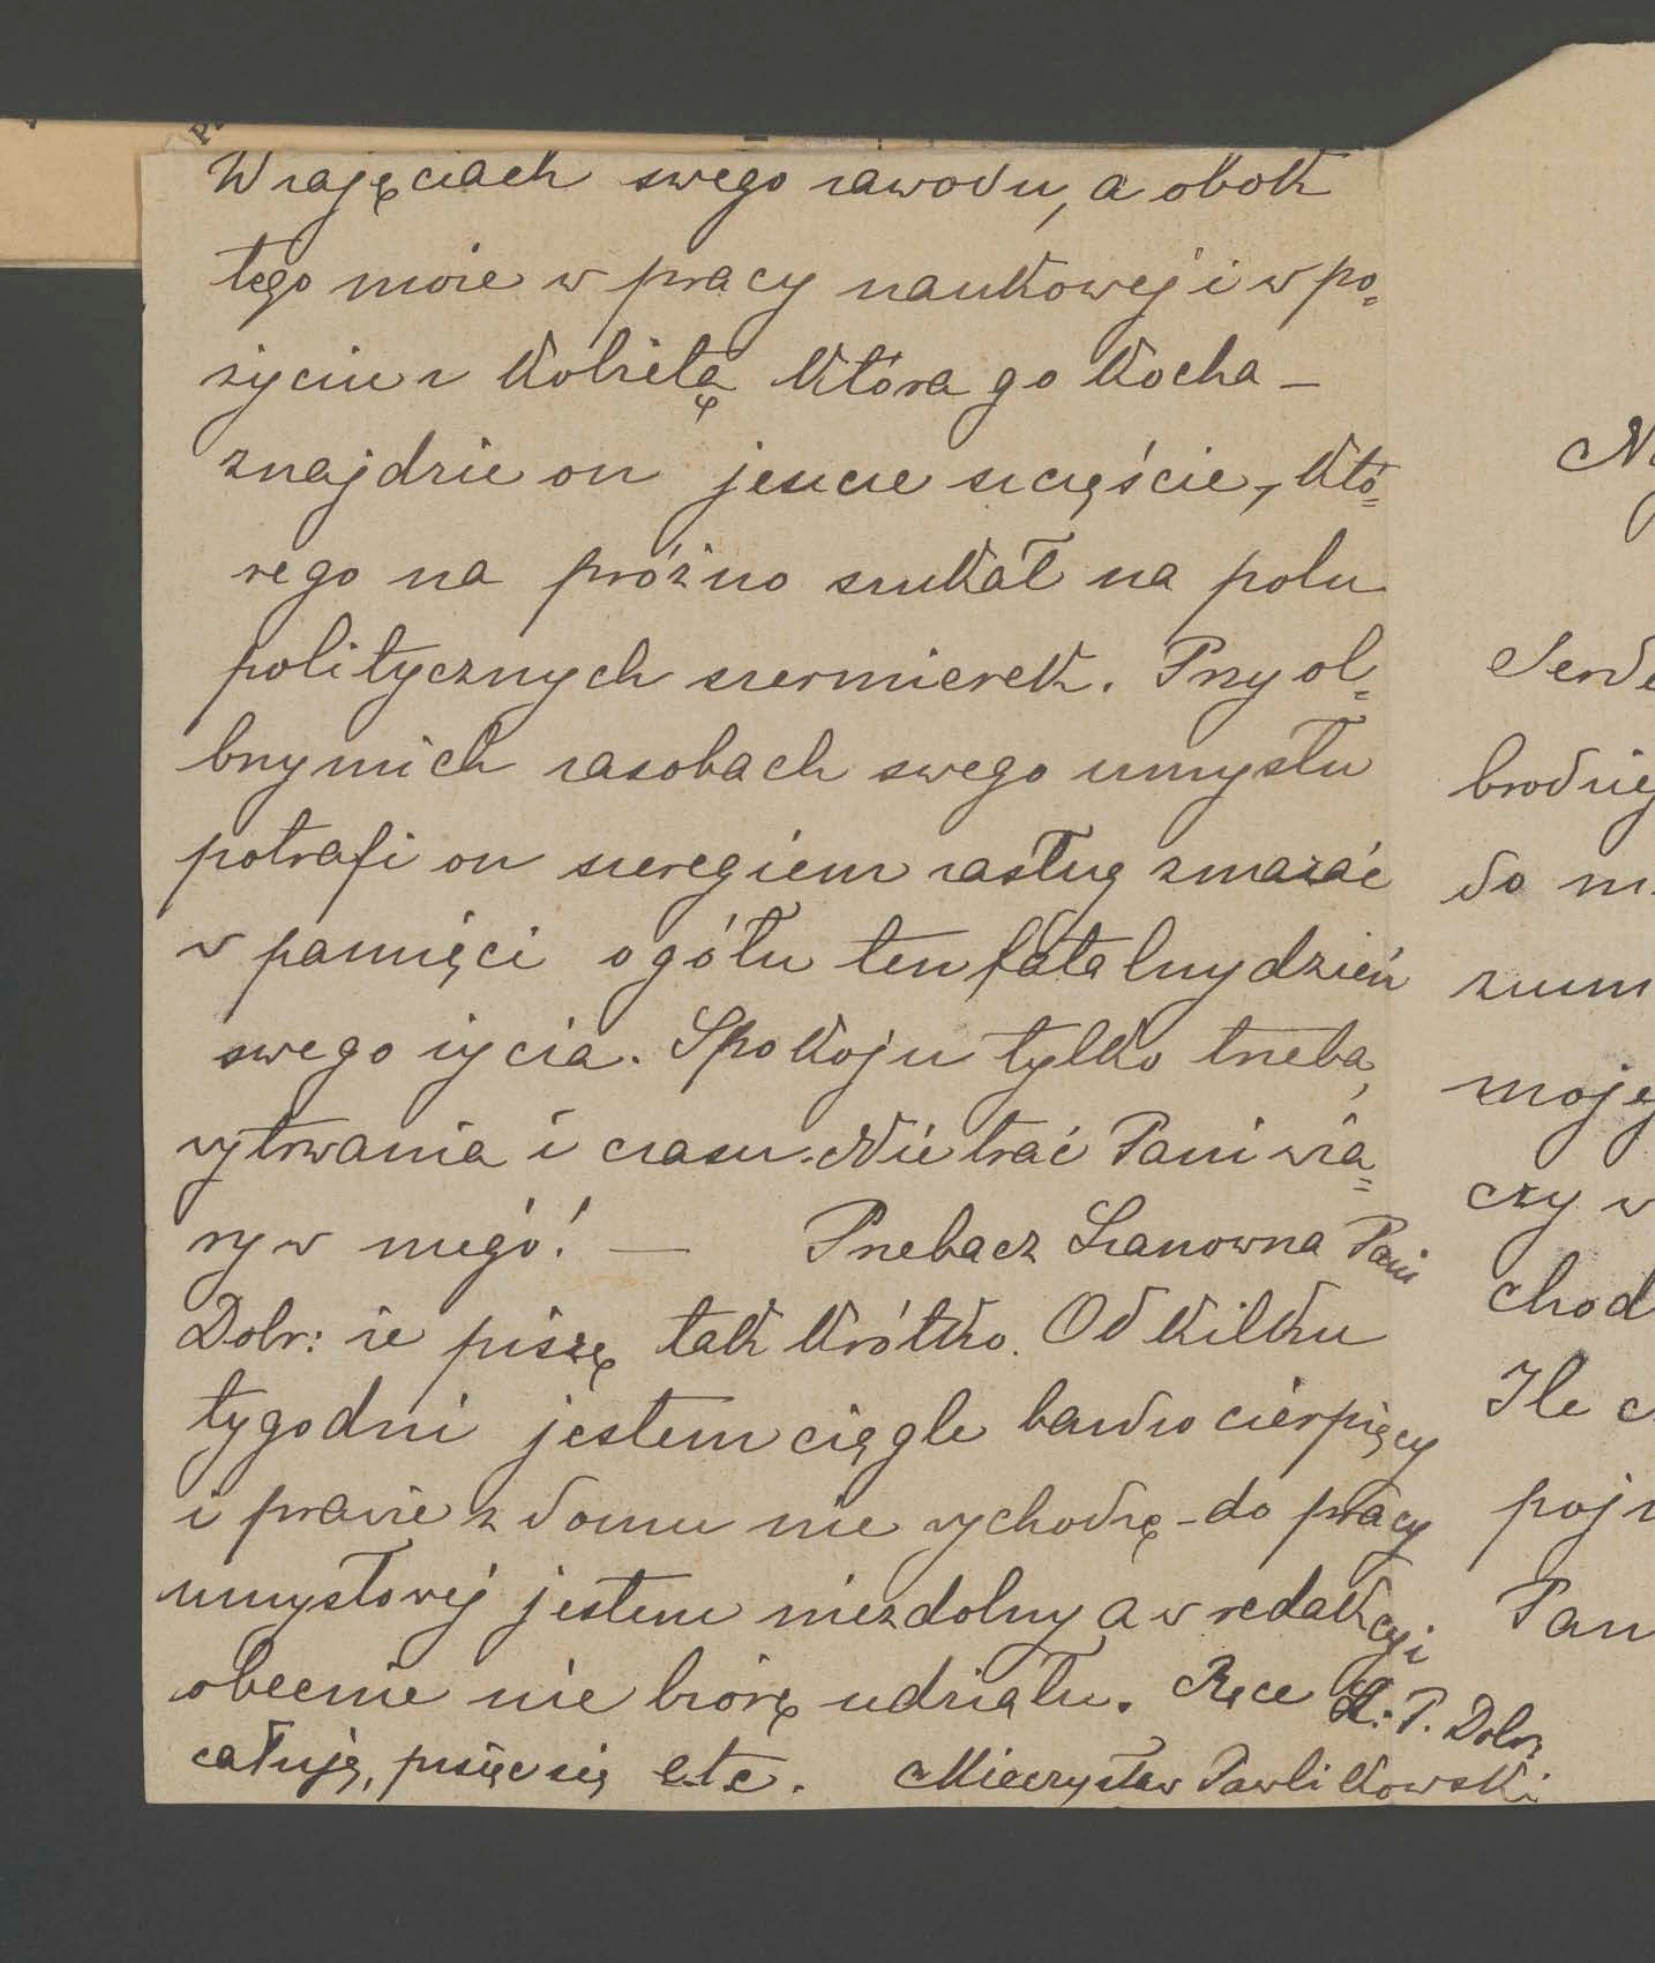 W zajęciach swego zawodu, a obok
tego może w pracy naukowej i w po=
życiu z kobietą która go kocha —
znajdzie on jeszcze szczęście, któ=
rego na próżno szukał na polu
politycznych szermierek. Przy ol=
brzymich zasobach swego umysłu
potrafi on szeregiem zasług zmazać
w pamięci ogółu ten fatalny dzień
swego życia. Spokoju tylko trzeba,
wytrwania i czasu. Nie trać Pani wia=
ry w niego! — Przebacz Szanowna Pani
Dobr: że piszę tak krótko. Od kilku
tygodni jestem ciągle bardzo cierpiący
i prawie z domu nie wychodzę - do pracy
umysłowej jestem niezdolny a w redakcyi
obecnie nie biorę udziału. Ręce Sz. P. Dobr
całuję, piszę się etc. Mieczysław Pawlikowski
Serde
brodziej
do m
zum
mojej
czy w
chod
Ile c
poj
Pan